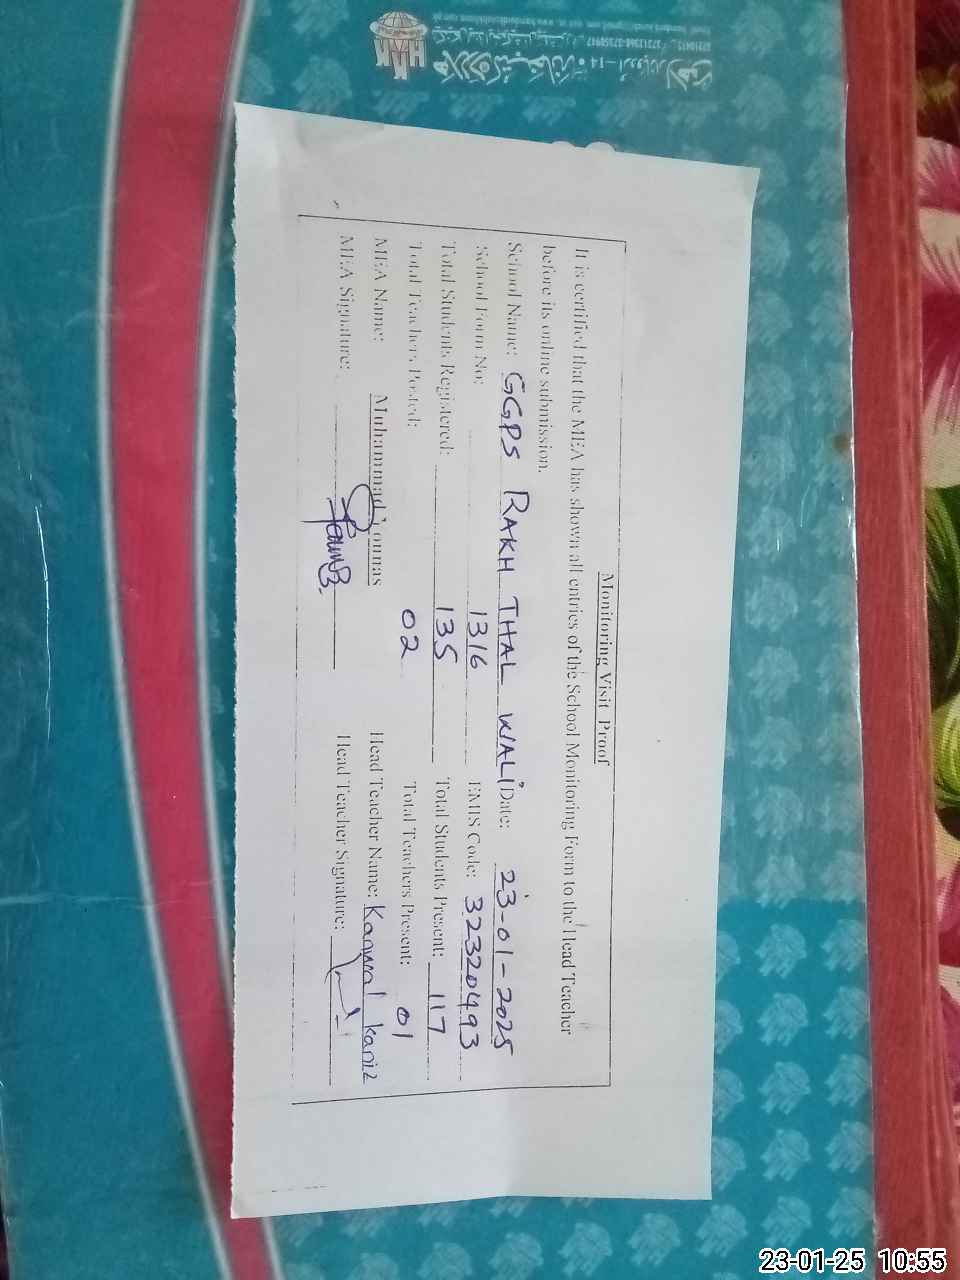 Monitoring Visit Proof
It is certified that the MEA has shown all entries of the School Monitoring Form to the Head Teacher
before its online submission.
School Name: GGPS RAKH THAL WALI Date: 23-01-2025
School Form No: 1316 EMIS Code: 32320493
Total Students Registered: 135 Total Students Present: 117
Total Teachers Posted: 02 Total Teachers Present: 01
MEA Name: Muhammad Younas Head Teacher Name: Kanwal Kaniz
MEA Signature: Head Teacher Signature:
HKK
23-01-25 10:55